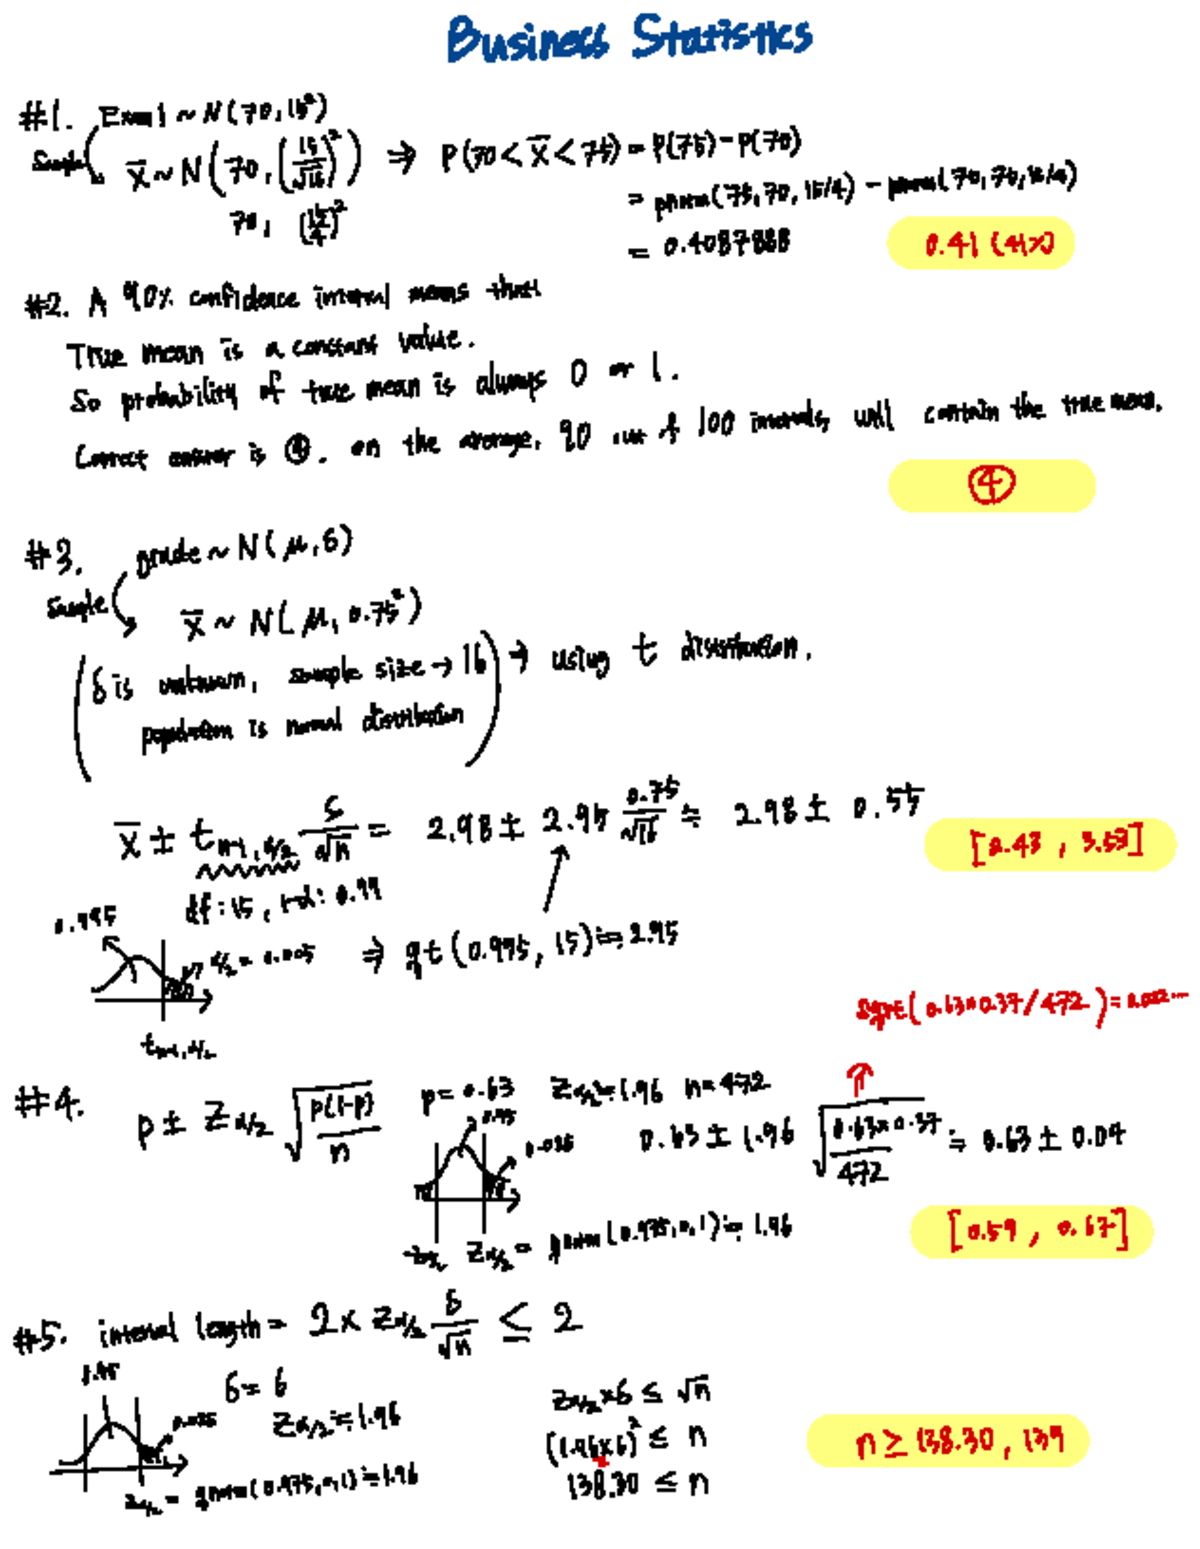 Business Statistics
#1. Exam 1 ~ N(70, 15²)
Sample
X̄ ~ N(70, (15/√16)²) ⇒ P(70 < X̄ < 75) = P(75) - P(70)
70, (15/4)²
= pnorm(75, 70, 15/4) - pnorm(70, 70, 15/4)
= 0.4087888
0.41 (41%)
#2. A 90% confidence interval means that
True mean is a constant value.
So probability of true mean is always 0 or 1.
Correct answer is ④. on the average, 90 out of 100 intervals will contain the true mean.
④
#3. grade ~ N(μ, δ)
Sample
X̄ ~ N(μ, 0.75²)
(δ is unknown, sample size → 16
population is normal distribution) → using t distribution.
X̄ ± t n-1, α/2 S/√n = 2.98 ± 2.95 0.75/√16 ≒ 2.98 ± 0.55
[2.43, 3.53]
df: 15, 1-α: 0.99
0.995
α/2 = 0.005 ⇒ qt(0.995, 15) ≒ 2.95
t n-1, α/2
sqrt(0.63*0.37/472) = 0.022...
#4. p ± Z α/2 √(p(1-p)/n) p = 0.63 Z α/2 ≒ 1.96 n = 472
0.95
0.025
0.63 ± 1.96 √(0.63×0.37/472) ≒ 0.63 ± 0.04
[0.59, 0.67]
-Z α/2 Z α/2 = qnorm(0.975, 0, 1) ≒ 1.96
#5. interval length = 2 × Z α/2 δ/√n ≤ 2
0.95
δ = 6
0.025
Z α/2 ≒ 1.96
Z α/2 × 6 ≤ √n
(1.96×6)² ≤ n
138.30 ≤ n
n ≥ 138.30, 139
Z α/2 = qnorm(0.975, 0, 1) ≒ 1.96